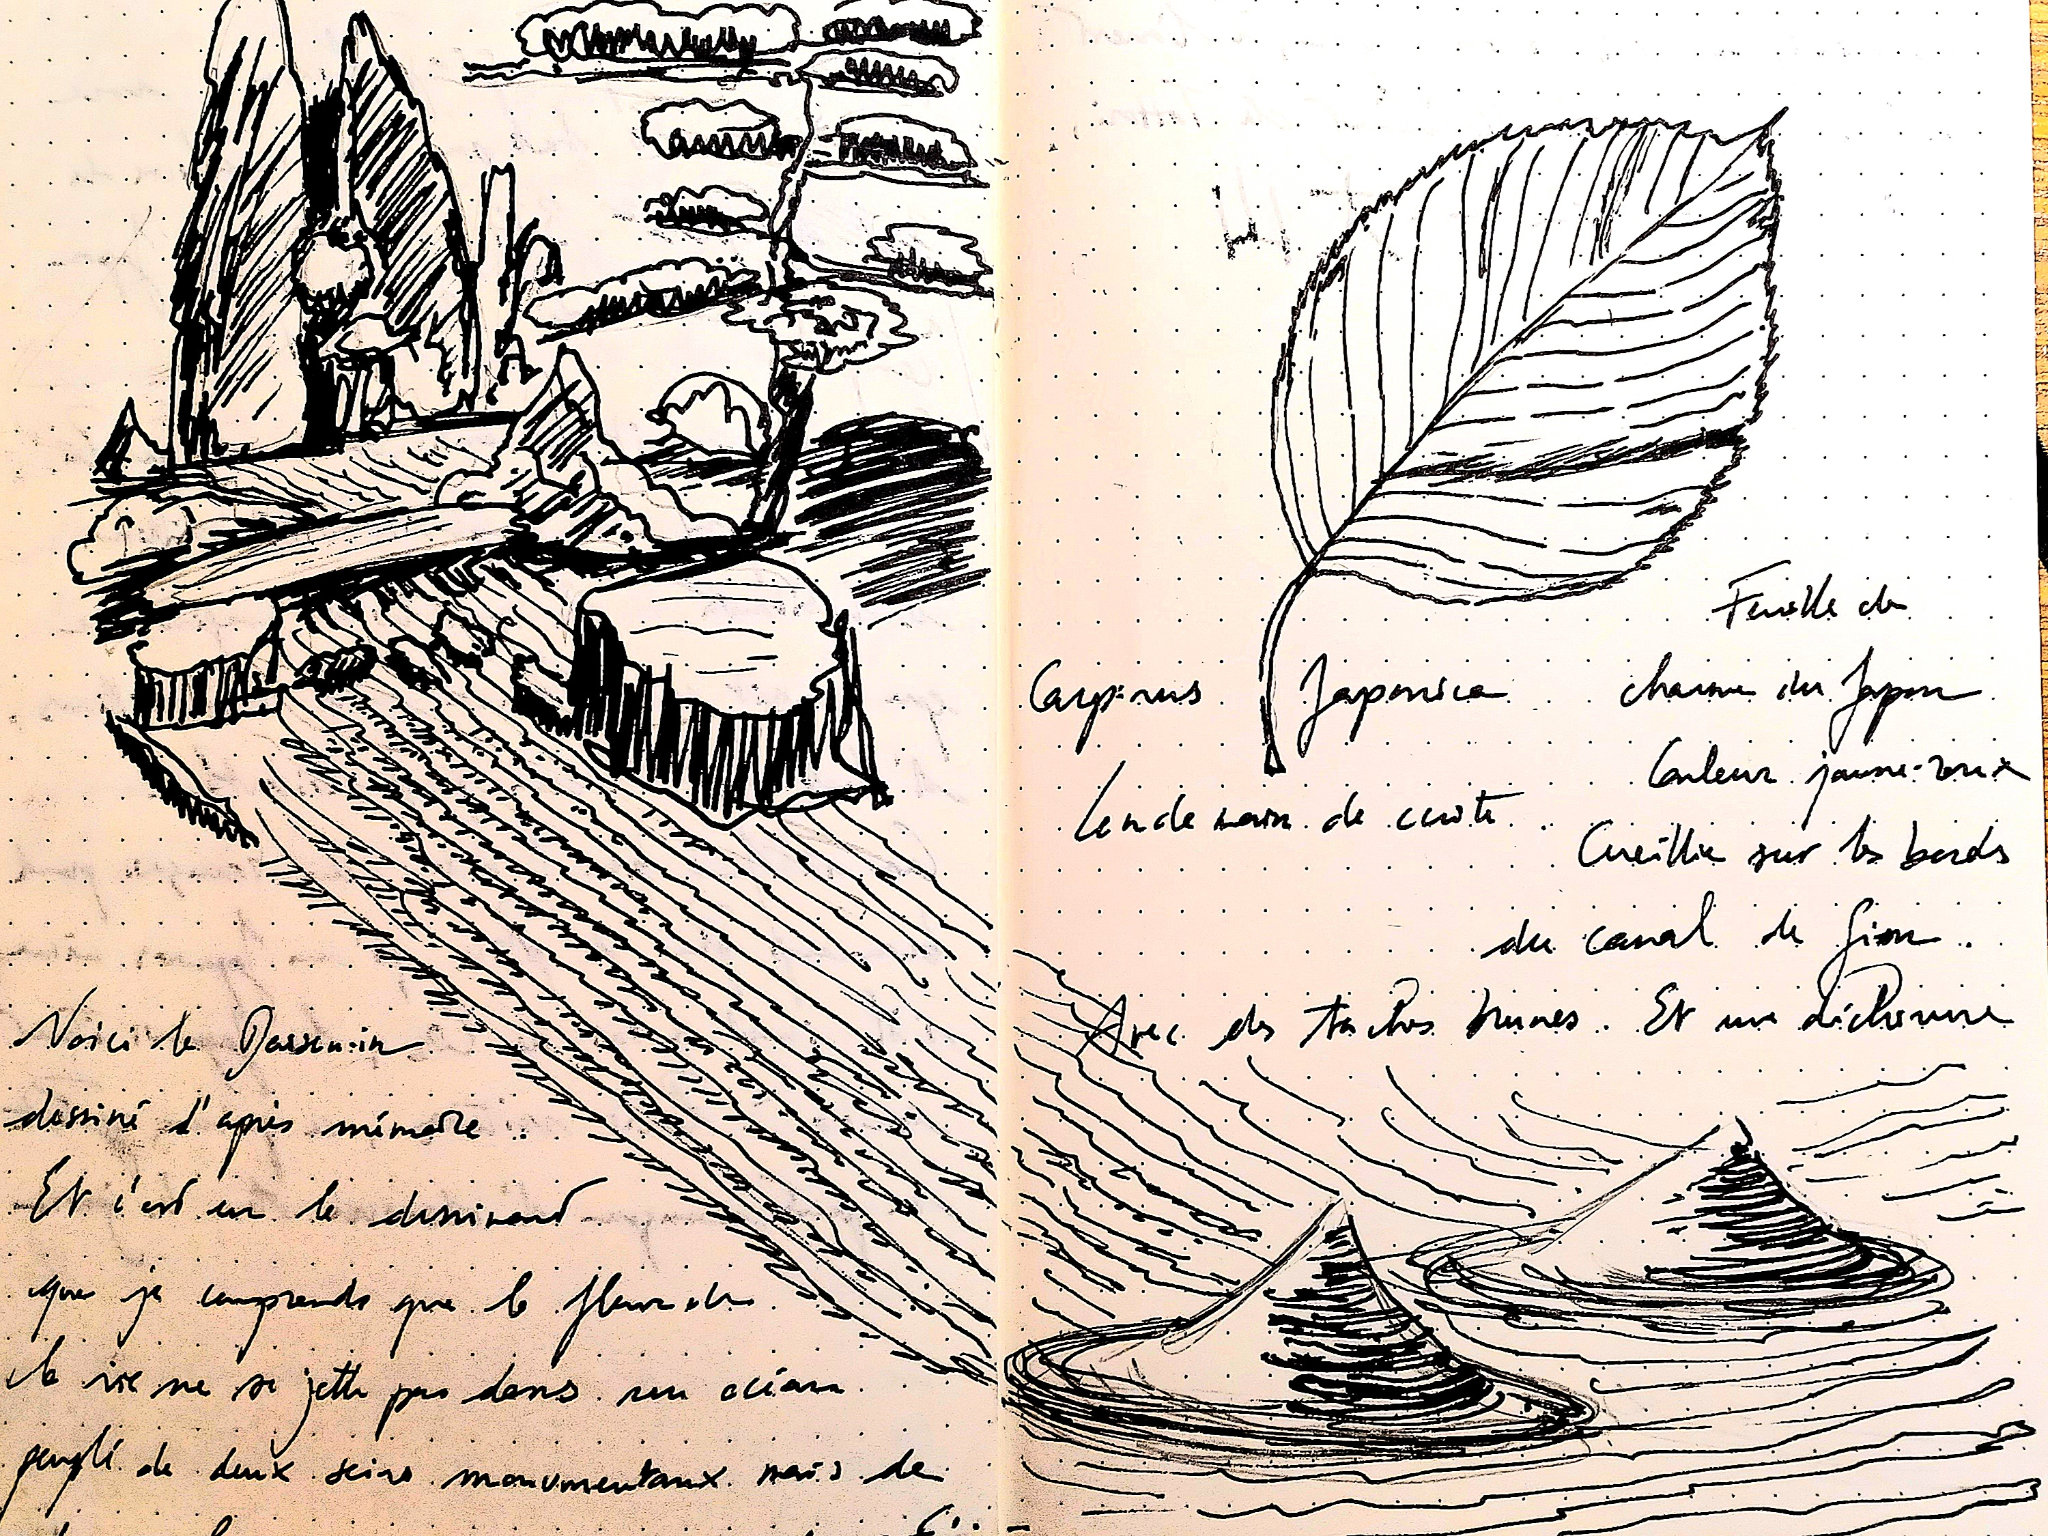 Voici le Daisen-in
dessiné d'après mémoire.
Et c'est en le dessinant
que je comprends que le fleuve de
la vie ne se jette pas dans un océan
peuplé de deux seins monumentaux mais de
Feuille de
Carpinus Japonica charme du Japon
Couleur jaune-roux
Lendemain de cuite
Cueillie sur les bords
du canal de Gion.
Avec des taches brunes. Et une déchirure